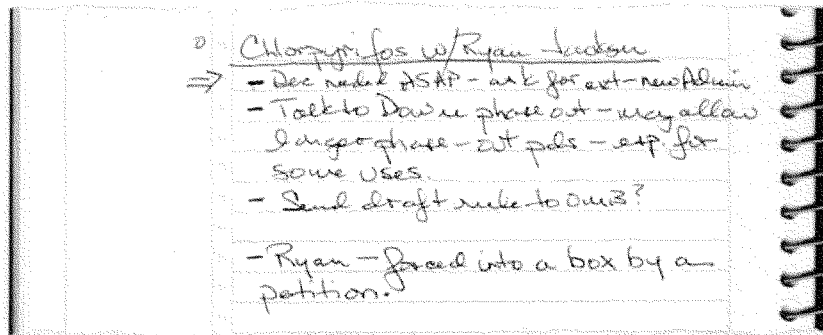 Chlorpyrifos w/Ryan Jackson
- Dec needed ASAP - ask for ext - new Admin
- Talk to Dow re phase out - may allow
longer phase-out pds - esp. for
some uses.
- Send draft rule to OMB?
- Ryan - forced into a box by a
petition.